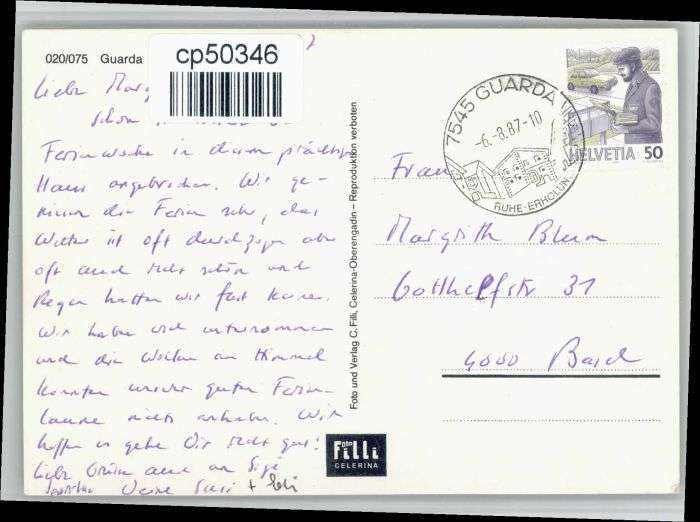 020/075 Guarda
cp50346
Liebe
schon
Ferienwoche in diesem prächtigen
Haus angebrochen. Wir ge-
niessen die Ferien sehr, das
Wetter ist oft durchzogen aber
oft auch recht schön und
Regen hatten wir fast keinen.
Wir haben viel unternommen
und die Wolken am Himmel
konnten unserer guten Ferien-
laune nichts anhaben. Wir
hoffen es gehe Dir recht gut!
Liebe Grüsse auch an
Deine Susi +
Foto und Verlag C. Filli, Celerina-Oberengadin – Reproduktion verboten
Foto
Filli
CELERINA
7545 GUARDA
-6.-8.87-10
RUHE-ERHOLUNG
HELVETIA 50
Frau
Margrith Blum
Gotthelfstr 31
4000 Basel